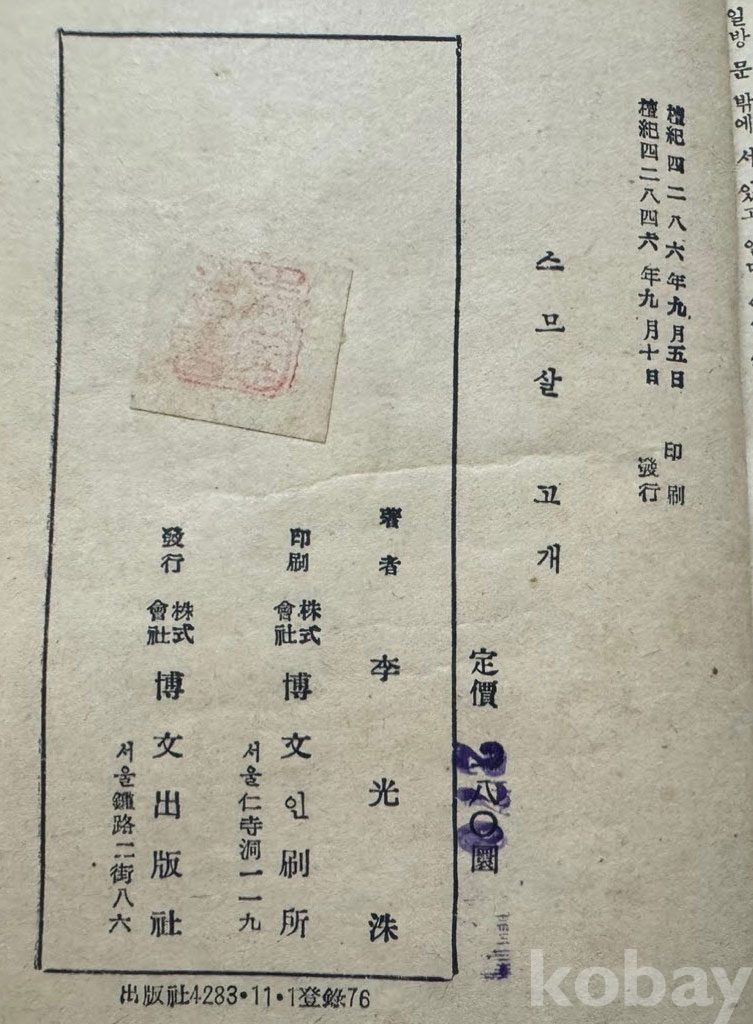 일방 문 밖에 서 있고
檀紀四二八六年九月五日 印刷
檀紀四二八四六年九月十日 發行
스므살 고개
定價 八〇圜
著者 李光洙
印刷 株式會社 博文인刷所
서울仁寺洞一一九
發行 株式會社 博文出版社
서울鍾路二街八六
出版社4283·11·1登錄76
kobay